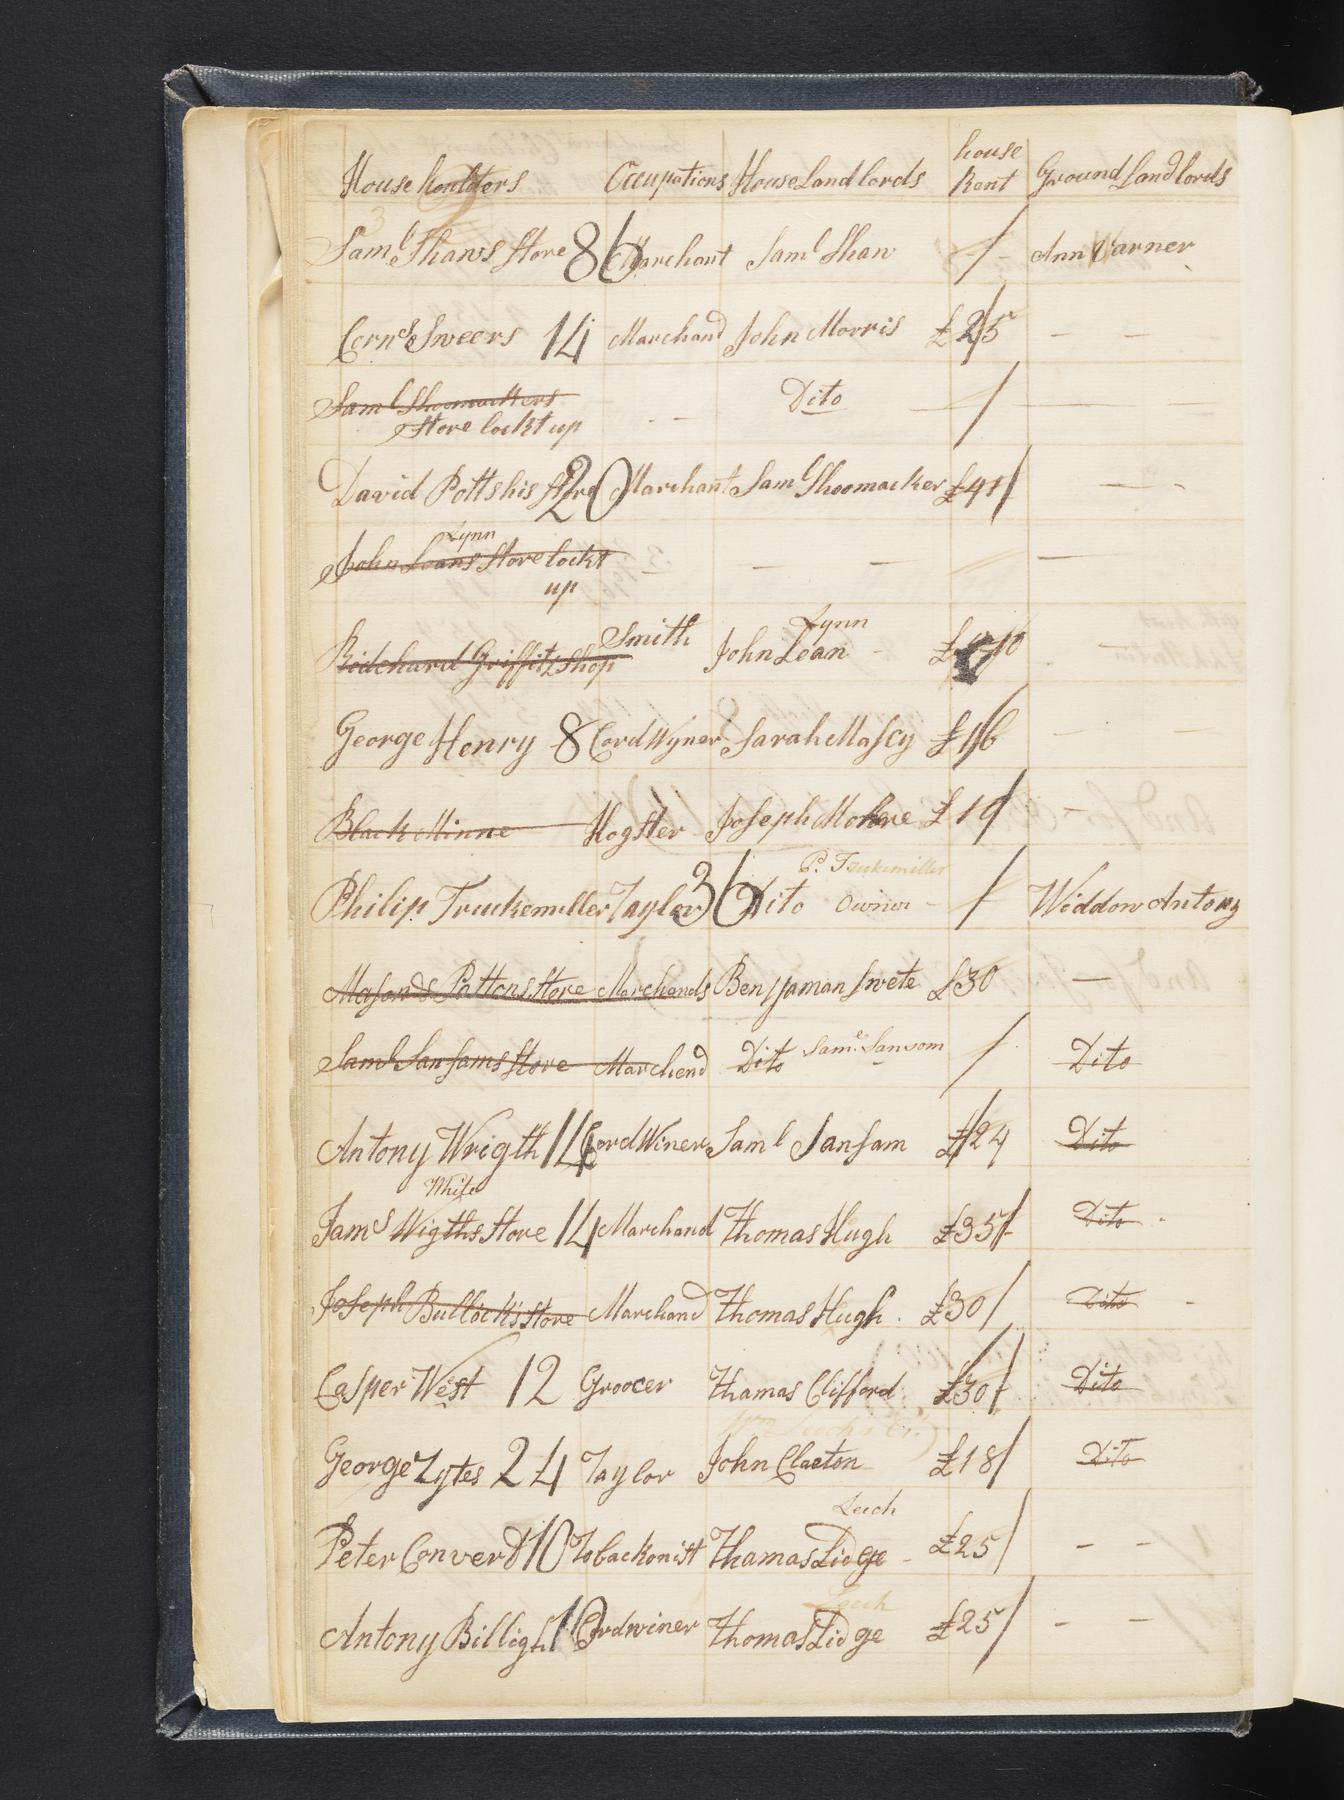 House houlders Occupations House Land lords house Rent Ground Land lords
Saml. Shaws Store 86 Marchant Saml Shaw / - Ann Warner
Corns. Sweers 14 Marchand John Morris £25 - -
Saml Shoomackers Dito /
Store lockt up - -
David Potts his Store 20 Marchant Saml Shoomacker £41/ -
Lynn
John Loans Store lockt - - - -
up
Smith Lynn
Ridchard Griffitz Shop John Loan - £10
George Henry 8 CordWyner Sarah Massey £16 - -
Black Minne Hogster Joseph £10 -
P. Truckemiller
Philip Truckenmiller Taylor 36 Dito Owner - / Widdow Antony
Mason & Pattons Store Marchands Benjjaman Swete £30 -
Saml. Sansams Store Marchend Dito Saml. Sansom / Dito
Antony Wrigth 14 CordWiner Saml Sansam £24 Dito
White
Jams Wigths Store 14 Marchand Thomas Hugh £35/- Dito
Joseph Bullock's Store Marchand Thomas Hugh £30/ Dito -
Casper West 12 Groocer Thamas Clifford £30/ Dito
George Lytes 24 Taylor John Claeton £18/ Dito
Leech
Peter Converd 10 Tobackonist Thamas Lidge - £25/ - -
Leech
Antony Billigh 10 Cordwiner Thomas Lidge £25/ - -